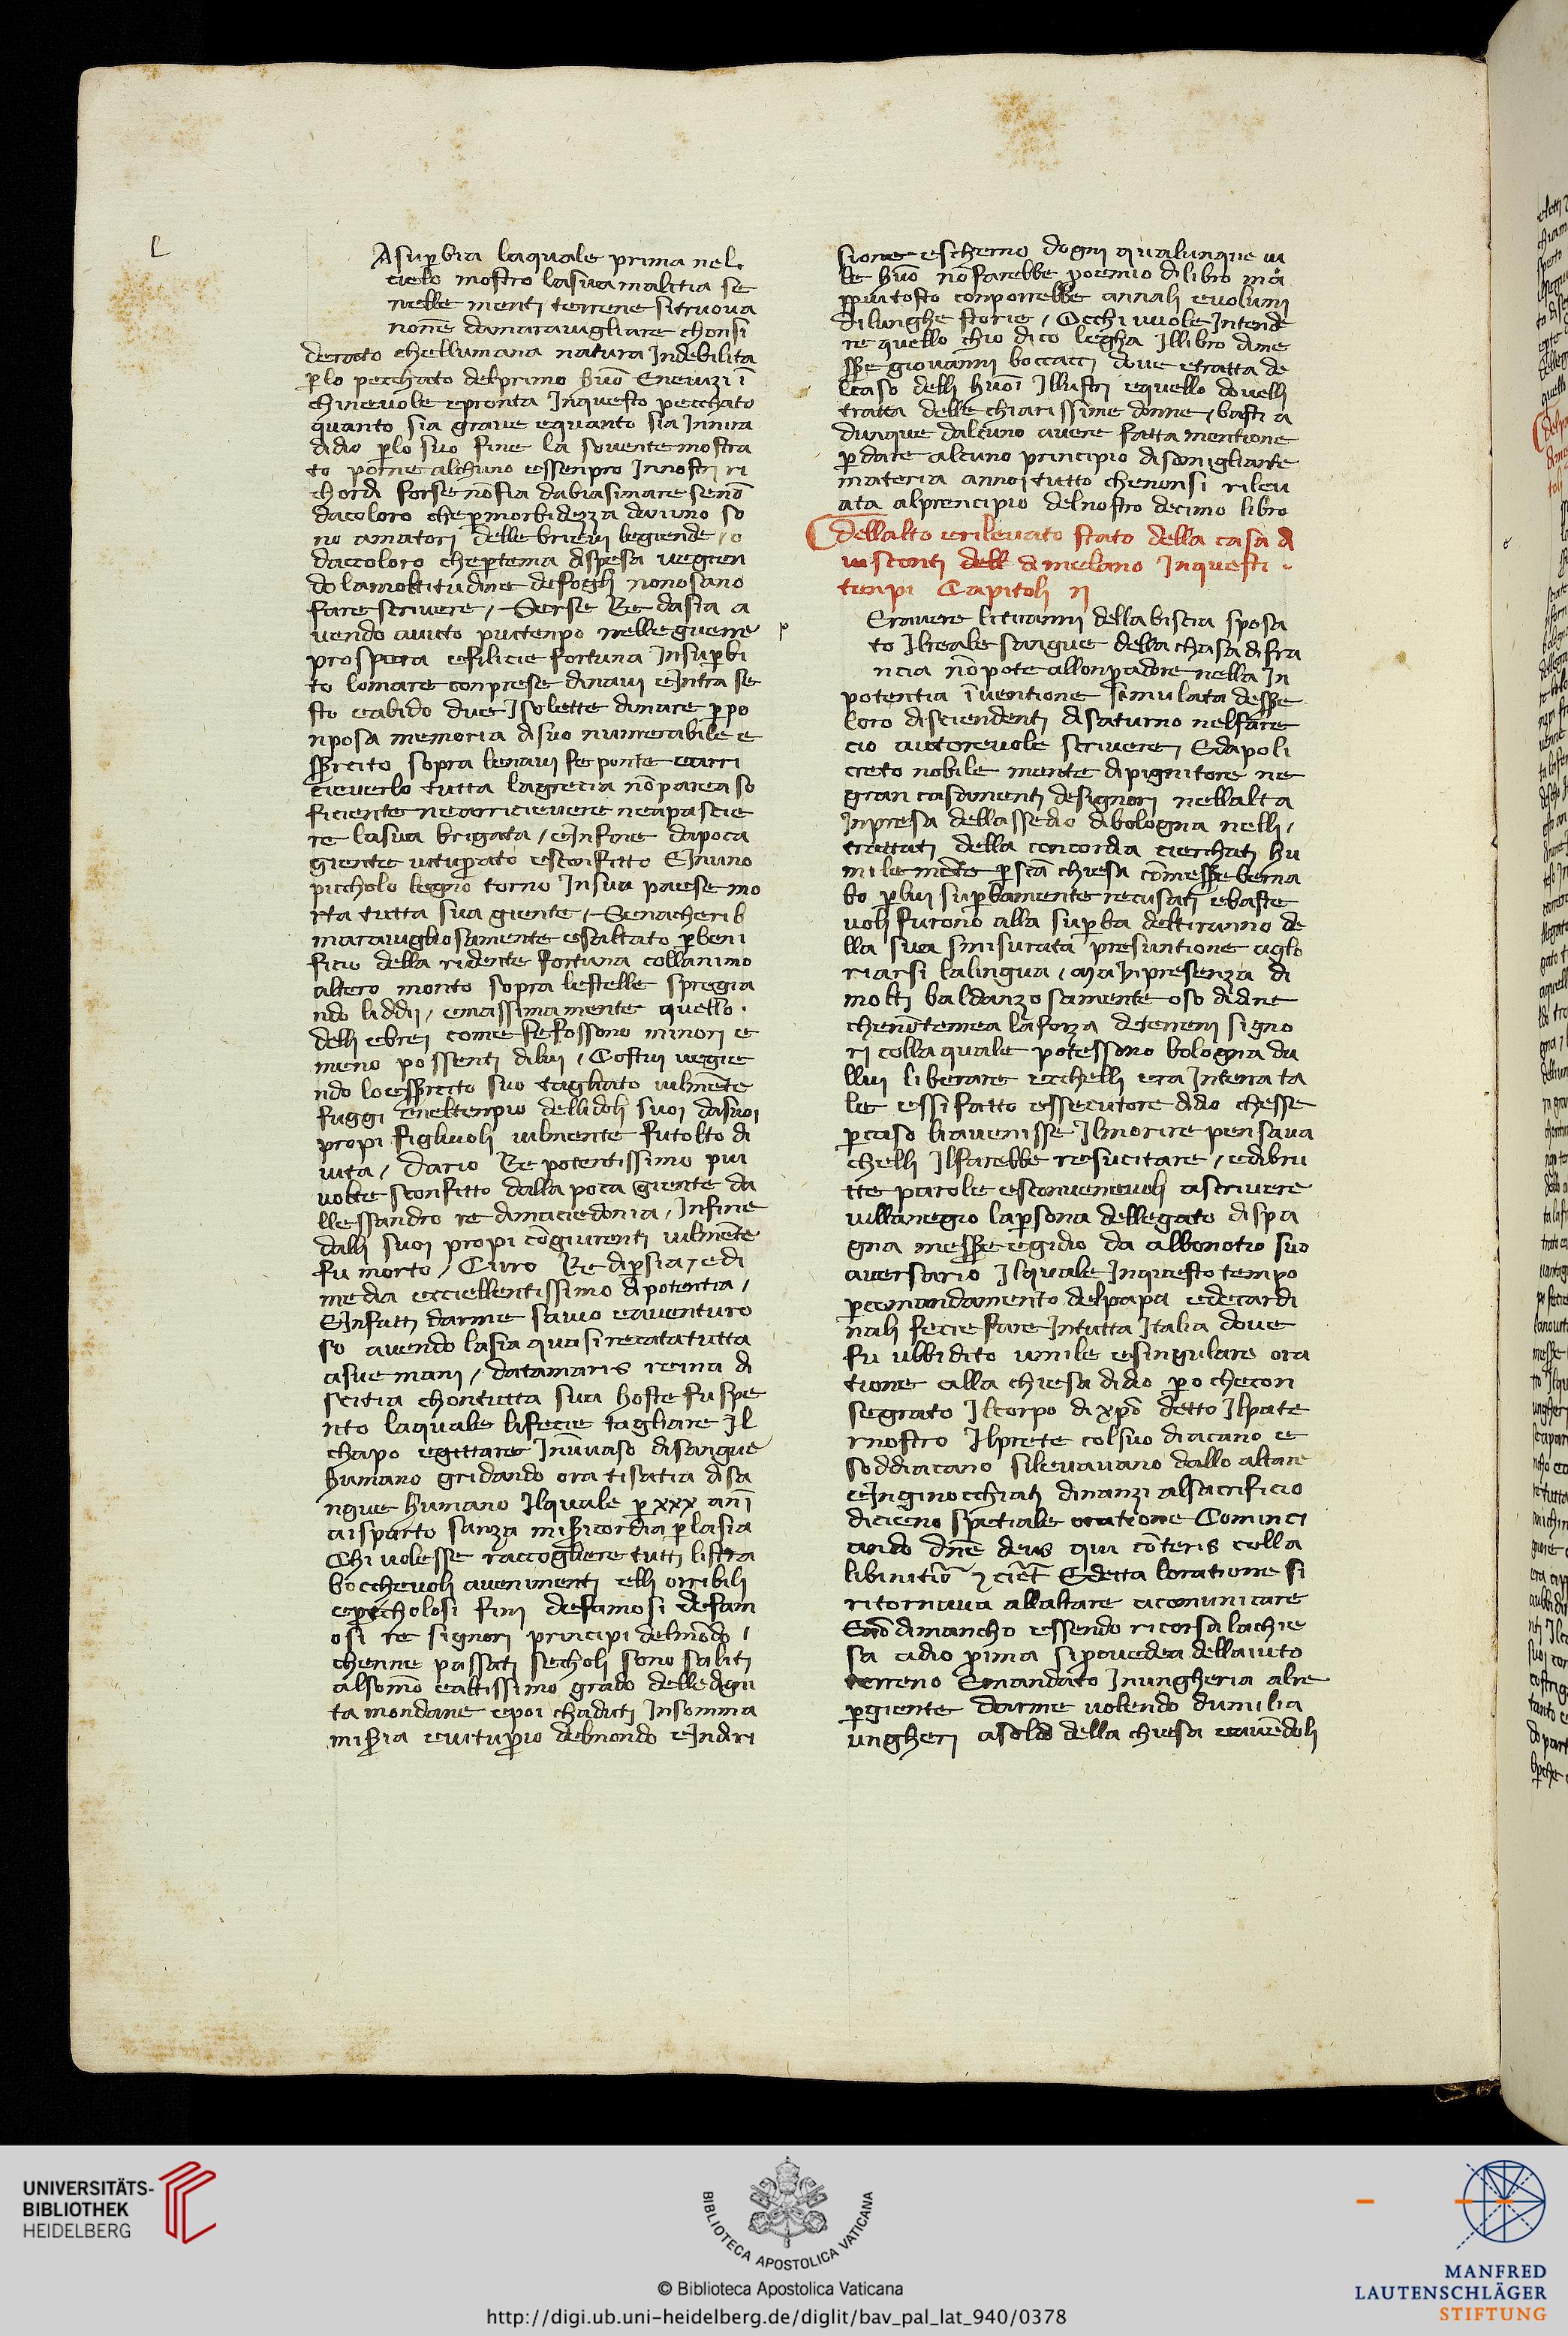 l
A sup̱bia laquale prima nel
cielo mostro lasua malitia se
nelle menti terrene sitruova
none damaravigliare chonsi
derato chellumana natura Indebilita
p̱lo pecchato delprimo huō Enevizi ī
chinevole epronta Inquesto pecchato
quanto sia grave equanto sia Innira
didio p̱lo suo fine la soventemostra
to porne alchuno essenpro Innostri ri
chordi forsenōfia dabiasimare senō
dacoloro chep̱morbidezza davuno so
no amatori delle brievi legiende / o
daccoloro chep̱tema dispesa vegien
do lamoltitudine defogli nonosano
fare scrivere / Serse Re dasia a
vendo avuto piutenpo nelleguerre
prospera efilicie fortuna Insup̱bi
to lomare conprese dinavi eIntra se
sto eabido due Isolette dimare p̱po
nposa memoria disuo numerabile e
sp̱rcito sopra lenavi fe ponte earri
cieverlo tutta lagrecia nō parea so
ficiente nearricievere neapascie
re lasua brigata / eInfine dapoca
giente vitup̱ato esconfitto EInuno
piccholo legno torno Insua paese mo
rta tutta sua giente / Senacherib
maravigliosamente esaltato p̱beni
ficio della ridente fortuna collanimo
altero monto sopra lestelle spregia
ndo liddii / emassimamente quello
delli ebrei come sefossono minori e
meno possenti dilui / Costui vegie
ndo loesp̱rcito suo tagliato vilmēte
fuggi Eneltenpio dellidoli suoi dasuoi
propi figliuoli vilmente futolto di
vita / Dario Re potentissimo piu
volte sconfitto dalla poca giente da
llessandro re dimaciedonia / Infine
dalli suoi propi cōgiurenti vilmēte
fu morto / Ciro Re dip̱sia / edi
media eccellentissimo dipotentia /
EInfatti darme savio eaventuro
so avendo lasia quasi recata tutta
asue mani / datamaris reina di
scitia chontutta sua hoste fu spe
nto laquale lifecie tagliare Il
chapo egittare Inūvaso disangue
humano gridando ora tisatia disa
ngue humano Ilquale p̱ xxx anī
ai sparto sanza misp̱icordia p̱lasia
Chi volesse raccogliere tutti listra
bocchevoli avenimenti elli orribili
ep̱icholosi fini defamosi defam
osi re signori principi delmōdo /
chenne passati secholi sono saliti
alsomō ealtissimo grado delle digni
ta mondane epoi chaduti Insomma
misp̱ia evitup̱io delmondo eIndiri
sione escherno dogni qualunque vi
le huō nōfarebbe poemio dilibro ma
p̱piutosto conporrebbe annali evolumi
dilunghe storie / Occhi vuole Intende
re quello chio dico legha Illibro dime
sp̱e giovanni boccacci dove etratta de
lcaso delli huōi Illustri equello dovelli
tratta delle chiarissime donne / basti a
dunque dalcuno avere fatta mentione
p̱ dare alcuno principio disomigliante
materia annoi tutto chenonsi rilieu
ata alprencipio delnostro decimo libro
dellalto erilevato stato della casa di
visconti dell dimelano Inquesti
tenpi Capitoli ij
p
Eravere litiranni dellabiscia sposa
to Ilreale sangue della chasa difra
ncia nō pote allonp̱adore nella In
potentia īventione simulata desp̱e
loro disciendenti disaturno nelfare
cio autorevole scrivere / Edapoli
creto nobile mente dipignitore ne
gran casamenti designori nellalta
Inpresa dellassedio dibologna nelli /
trattati della concordia cierchati hu
milemēte p̱ scā chiesa cōmesp̱e berna
bo p̱lui sup̱bamente recusati ebaste
voli furono alla sup̱ba deltiranno de
lla sua smisurata presuntione aglo
riarsi lalingua / Ma Inpresenza di
molti baldanzosamente oso didire
chenōtemea laforza deterreni signo
ri colla quale potessono bologna da
llui liberare ecchelli era Interra ta
le essi fatto essecutore didio chesse
p̱caso liavenisse Ilmorire pensava
chelli Ilfarebbe resucitare / edibru
tte parole esconvenevoli ascrivere
villanegio lap̱sona dellegato dispa
gna mesp̱e egidio da albonotio suo
aversario Ilquale Inquesto tempo
p̱comandamento delpapa edecardi
nali fecie fare Intutta Italia dove
fu ubbidito umile esingulare ora
tione alla chiesa didio p̱o checon
segrato Ilcorpo di xp̄o detto Ilpate
rnostro Ilprete colsuo diacano e
soddiacano silevavano dallo altare
eInginocchiati dinanzi alsacrificio
diciēno spetiale oratione Cominci
ando dn̄e deus qui cōteris colla
libinitiō ⁊ ciēt̄ Edetta loratione si
ritornava allaltare acomunicare
Enōdimancho essendo ricorsa lachie
sa adio p̱ima si p̱ovedea dellaiuto
terreno Emandato Inungheria alre
p̱giente darme volendo dumilia
ungheri asoldo della chiesa eavēdoli
UNIVERSITÄTS-
BIBLIOTHEK
HEIDELBERG
BIBLIOTECA APOSTOLICA VATICANA
© Biblioteca Apostolica Vaticana
http://digi.ub.uni-heidelberg.de/diglit/bav_pal_lat_940/0378
MANFRED
LAUTENSCHLÄGER
STIFTUNG